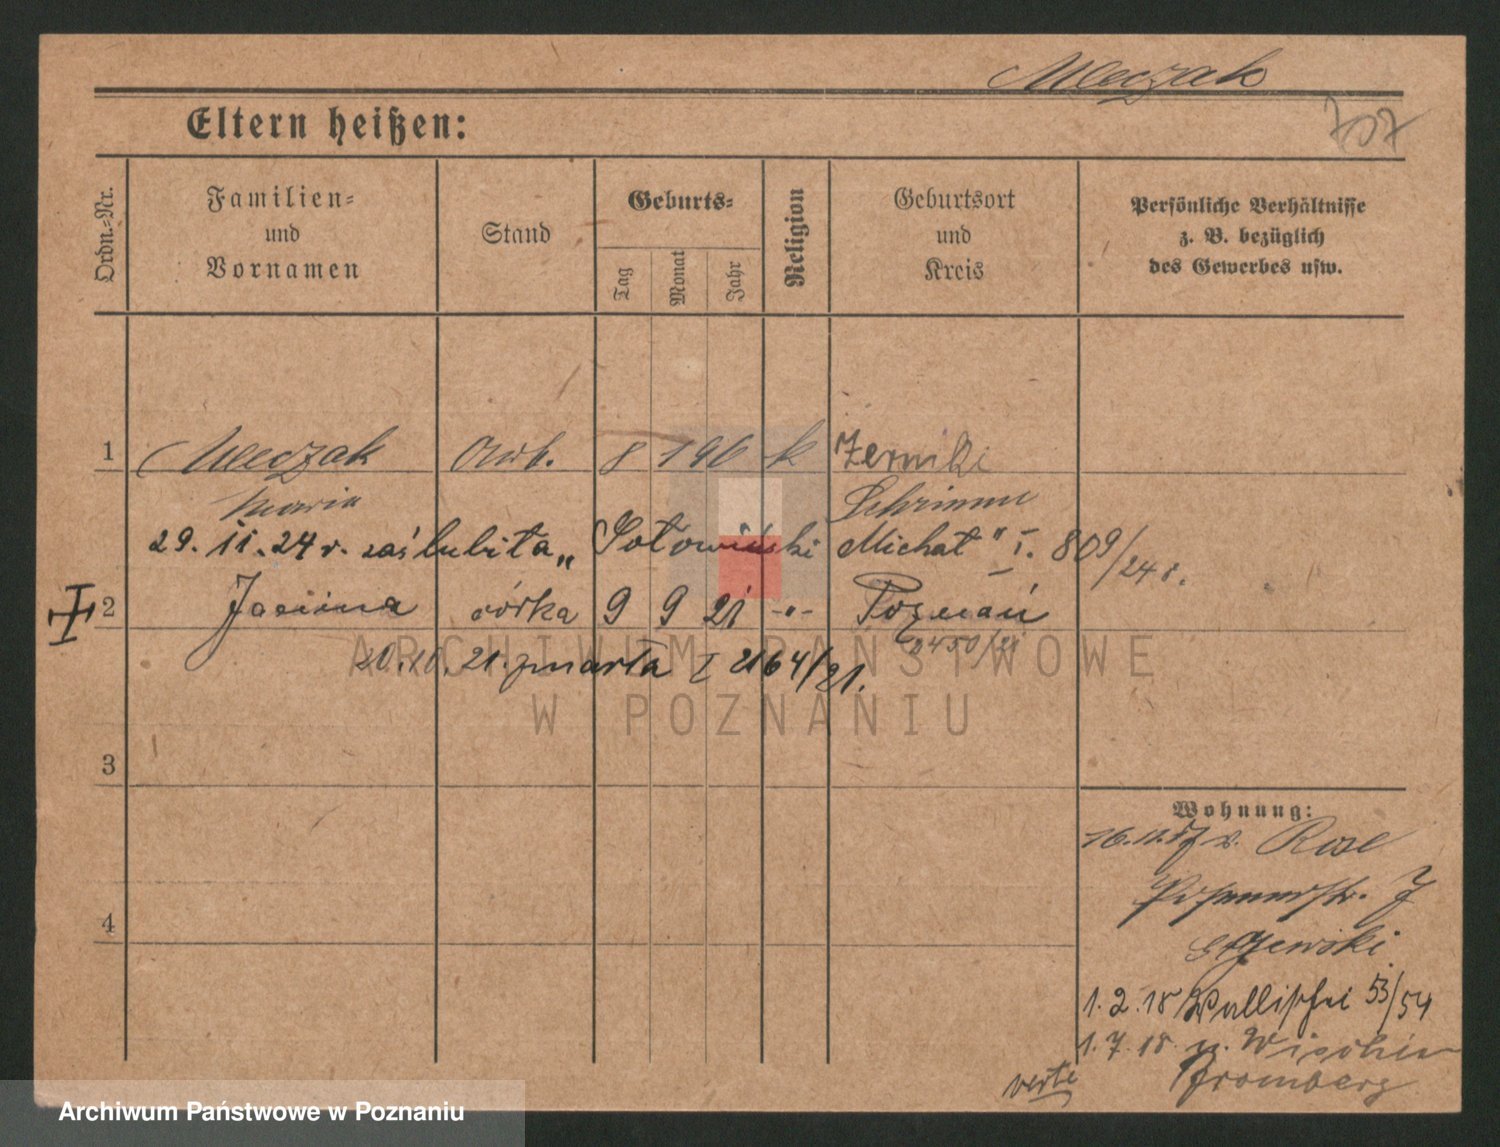 Mleczak
707
Eltern heißen:
Ordn.-Nr.
Familien-
und
Vornamen
Stand
Geburts-
Tag
Monat
Jahr
Religion
Geburtsort
und
Kreis
Persönliche Verhältnisse
z. B. bezüglich
des Gewerbes usw.
1 Mleczak Arb. 8 1 96 k Zerniki
Maria Schrimm
29. 11. 24 r. zaślubiła „ Sołowiński Michał" I. 809/24 r.
2 Janina córka 9 9 21 -"- Poznań
2450/21
20.10.21. zmarła I 2164/21.
3
4
Wohnung:
16.11.17 v. Rose
7
1.2.18 Wallischei 53/54
1.7.18 n.
Bromberg
verte
ARCHIWUM PAŃSTWOWE
W POZNANIU
Archiwum Państwowe w Poznaniu